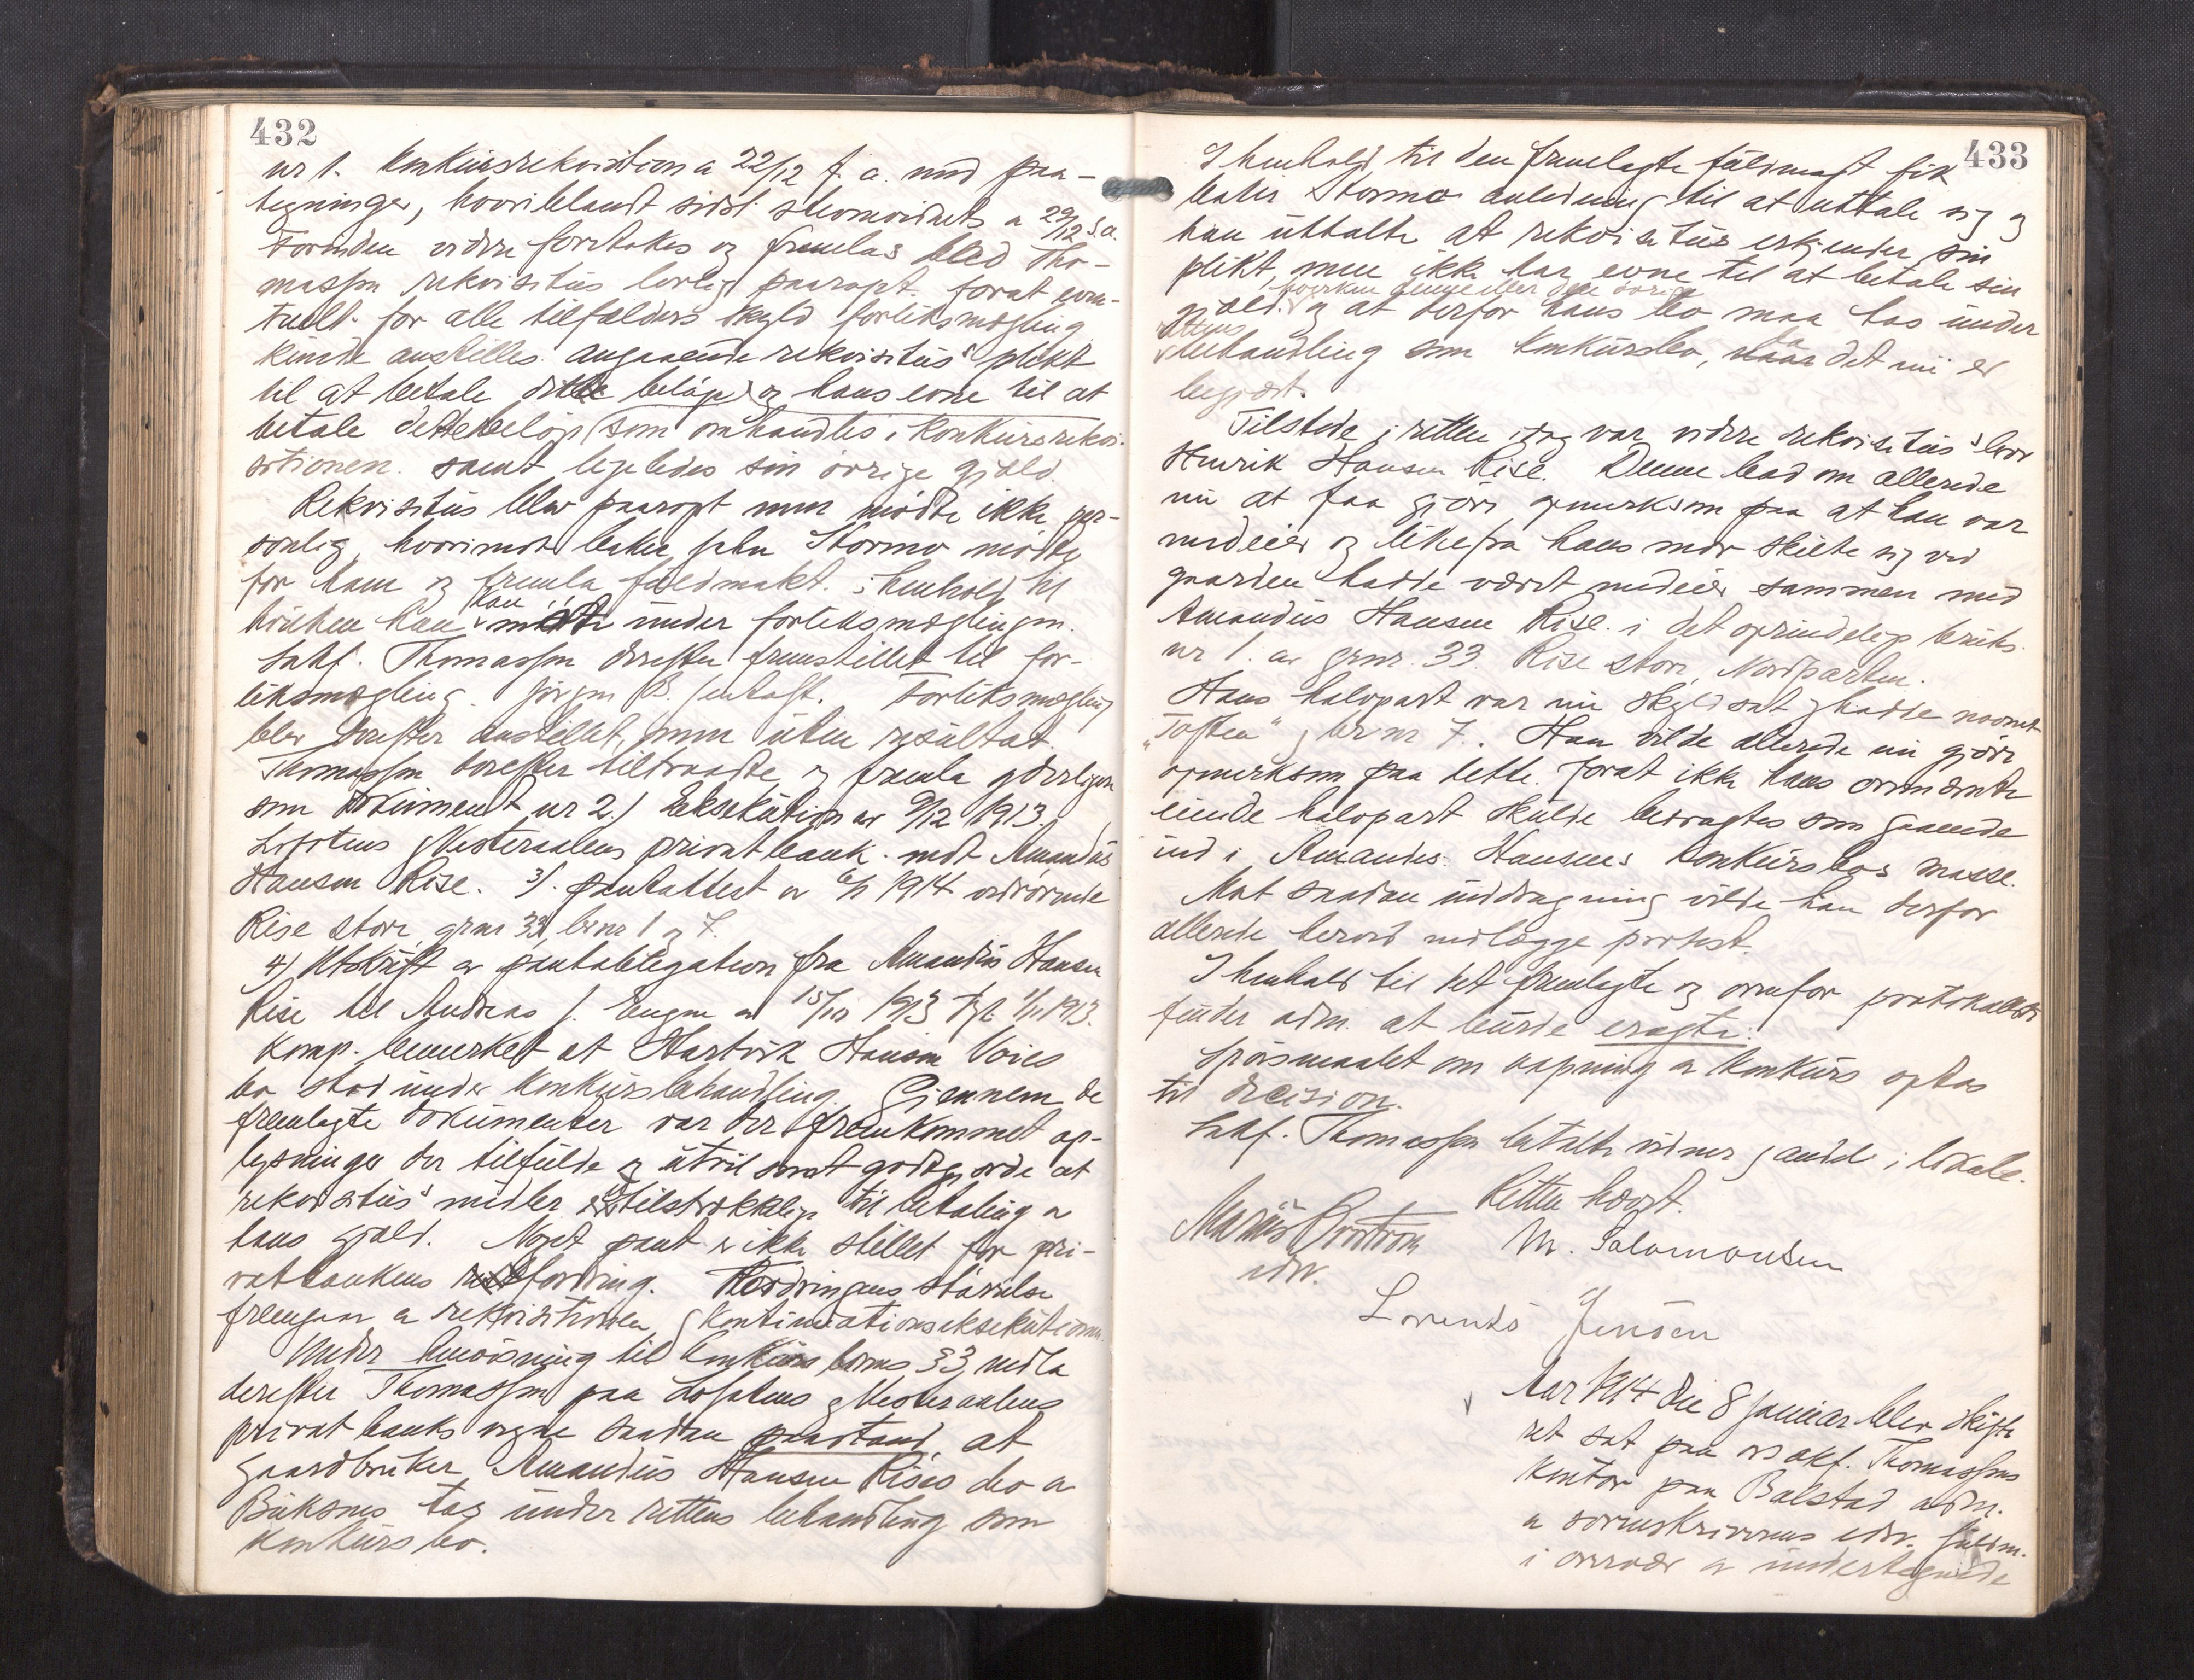 432
nr 1. Konkursrekvisition a 22/12 f. a. med paa-
tegninger, hvoriblandt sidst skiomvidnets a 29/12 s.a.
Forinden videre foretokes og fremlas bad Tho-
massen rekvisitus lovlig paaropt. forat even-
tuelt for alle tilfælders skyld forliksmægling
kunde anstilles angaaende rekvisitus' plikt
til at betale dette beløp og hans evne til at
betale dette beløp som omhandles i konkursrekvi-
sitionen. samt ligeledes sin øvrige gjæld.
Rekvisitus blev paaropt men mødte ikke per-
sonlig, hvorimot baker John Stormo mødte
for ham og fremla fuldmakt. i henhold til
hvilken han kan møte under forliksmæglingen.
Sakf. Thomassen derefter fremstillet til for-
liksmægling Jørgen B. Forliksmægling
blev derefter anstillet, men uten resultat.
Thomassen derefter tiltraadte og fremla yderligere
som dokument nr 2.) Eksekution av 9/12 1913
Lofotens & Vesteraalens privatbank mot Amandus
Hansen Rise. 3). pantattest av 6/1 1914 vedrørende
Rise store grnr 33, brnr 1 og 7.
4) Utskrift av pantobligation fra Amandus Hansen
Rise til Andreas J. Engen av 15/10 1913 tgl. 1/11 1913.
Komp. bemerket at Hartvik Hansen Voies
bo stod under konkursbehandling. Gjennem de
fremlagte dokumenter var der fremkommet op-
lysninger der tilfulde og utvilsomt godtgjorde at
rekvisitus' midler er utilstrækkelige til betaling av
hans gjæld. Noget pant er ikke stillet for pri-
vatbankens fordring. Fordringens størrelse
fremgaar av rekvisitionen & kontinuationseksekutionen.
Under henvisning til konkurslovens § 3, nedla
derefter Thomassen paa Lofotens & Vesteraalens
privatbanks vegne saadan paastand, at
gaardbruker Amandus Hansen Rises bo av
Buksnes tas under rettens behandling som
konkursbo.
433
I henhold til den fremlagte fuldmagt fik
baker Stormo anledning til at uttale sig og
han uttalte at rekvisitus erkjender sin
plikt, men ikke har evne til at betale sin
hverken denne eller den øvrige
gjæld. og at derfor hans bo maa tas under
rettens
behandling som konkursbo, da det nu er
begjært.
Tilstede i retten idag var videre rekvisitus's bror
Henrik Hansen Rise. Denne bad om allerede
nu at faa gjøre opmerksom paa at han var
medeier og likefra hans mor skilte sig ved
gaarden hadde været medeier sammen med
Amandus Hansen Rise i det oprindelige bruks
nr 1. av grnr. 33. Rise store, Nordparten.
Hans halvpart var nu skyldsat & hadde navnet
"Toften", brnr 7. Han vilde allerede nu gjøre
opmerksom paa dette. forat ikke hans omvendte
eiende halvpart skulde betragtes som gaaende
ind i Amandus Hansens konkursbos masse.
Mot saadan inddragning vilde han derfor
allerede herved nedlægge protest.
I henhold til det fremlagte og ovenfor protokollerte
finder adm. at burde eragte:
Spørsmaalet om aapning av konkurs optas
til decision.
Sakf. Thomassen betalte vidner & andel i lokale.
Retten hævet.
M. Salomonsen
edsv.
Lorents Jensen
Aar 1914 den 8 januar blev skifte
ret sat paa o.r.sakf. Thomassens
kontor paa Balstad adm.
av sorenskriverens edsv. fuldm.
i overvær av undertegnede